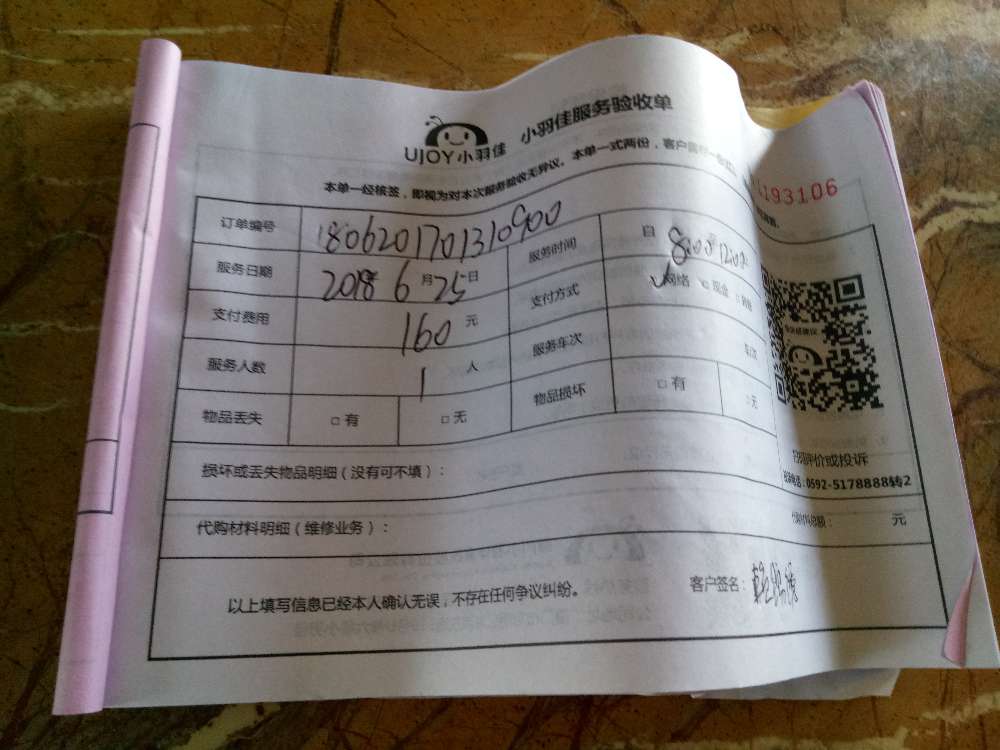 UJOY小羽佳 小羽佳服务验收单
本单一经核签，即视为对本次服务验收无异议。本单一式两份，客户
193106
订单编号 1806201701310900 服务时间 自 8:00 12:00
服务日期 2018年 6月 25日 支付方式 ✓网络 □现金 □
支付费用 160 元 服务车次 车次
服务人数 1 人 物品损坏 □有 □无
物品丢失 □有 □无
损坏或丢失物品明细（没有可不填）：
评价或投诉
0592-5178888转2
代购材料明细（维修业务）： 代购材料总额： 元
以上填写信息已经本人确认无误，不存在任何争议纠纷。 客户签名：